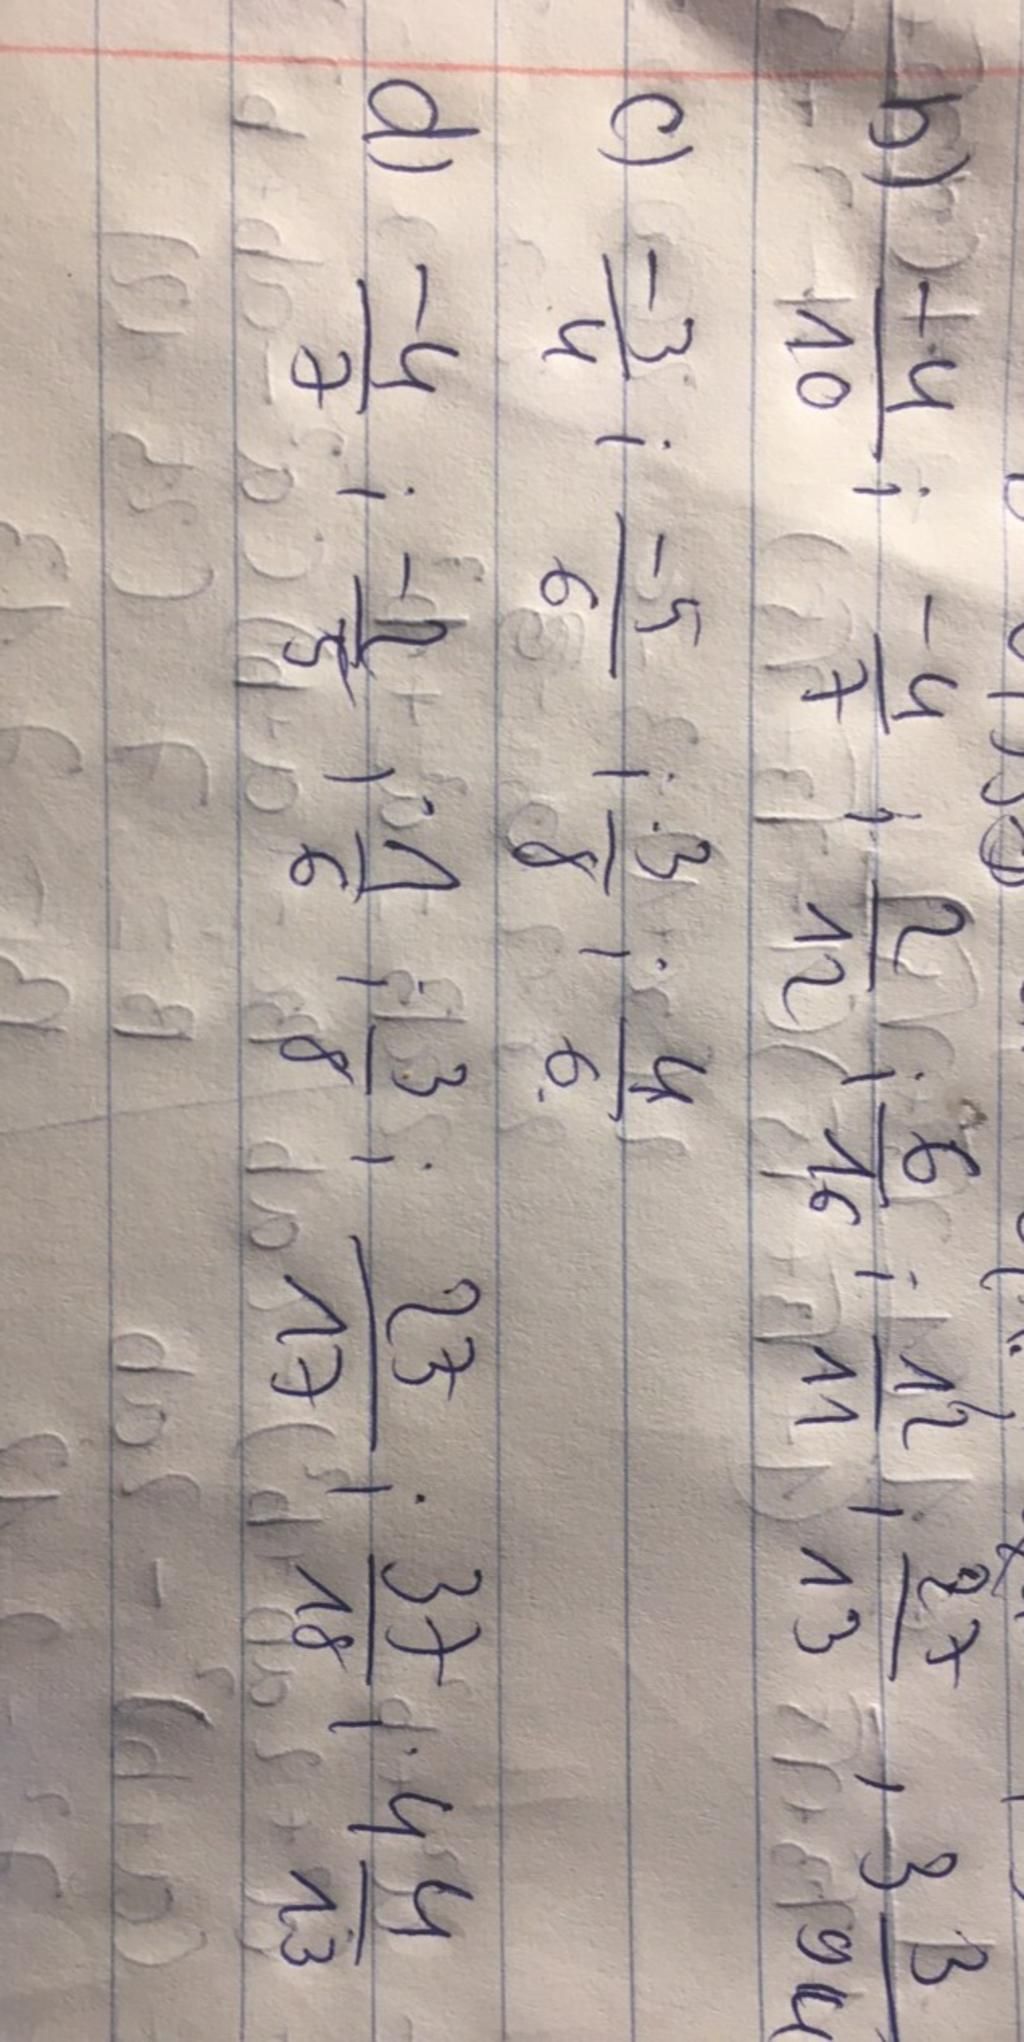 b) -4/10 ; -4/7 ; 2/12 ; 6/16 ; 12/11 ; 27/13 ; 3 3/94
c) -3/4 ; -5/6 ; 3/8 ; 4/6
d) -4/7 ; -2/5 ; 1/6 ; 3/8 ; 27/17 ; 37/18 ; 4 4/13